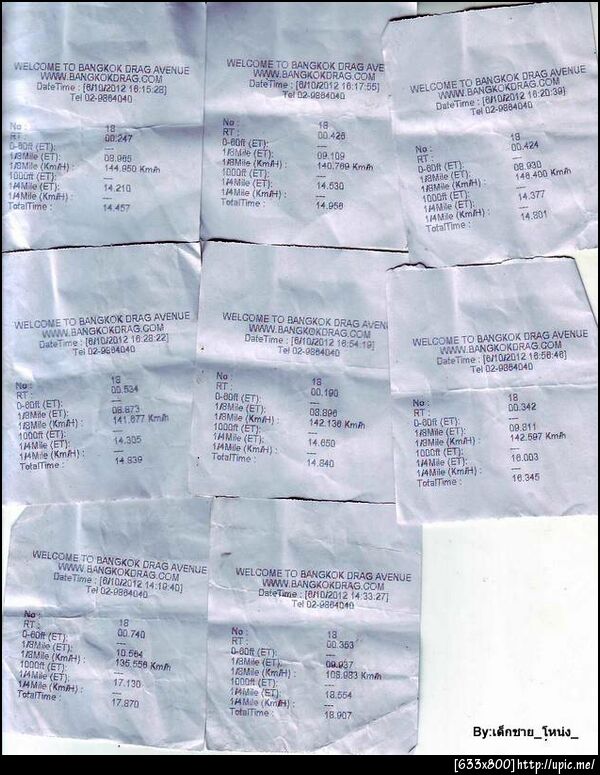 WELCOME TO BANGKOK DRAG AVENUE
WWW.BANGKOKDRAG.COM
DateTime : [6/10/2012 16:15:28]
Tel 02-9864040
No : 18
RT : 00.247
0-60ft (ET): ---
1/8Mile (ET): 08.965
1/8Mile (Km/H) : 144.950 Km/h
1000ft (ET) : ---
1/4Mile (ET) : 14.210
1/4Mile (Km/H) : ---
TotalTime : 14.457
WELCOME TO BANGKOK DRAG AVENU
WWW.BANGKOKDRAG.COM
DateTime : [6/10/2012 16:17:55]
Tel 02-9864040
No : 18
RT : 00.426
0-60ft (ET): ---
1/8Mile (ET): 09.109
1/8Mile (Km/H) : 140.769 Km/h
1000ft (ET) : ---
1/4Mile (ET) : 14.530
1/4Mile (Km/H) : ---
TotalTime : 14.956
WELCOME TO BANGKOK DRAG AVENUE
WWW.BANGKOKDRAG.COM
DateTime : [6/10/2012 16:20:39]
Tel 02-9864040
No : 18
RT : 00.424
0-60ft (ET): ---
1/8Mile (ET): 08.930
1/8Mile (Km/H) : 146.400 Km/h
1000ft (ET) : ---
1/4Mile (ET) : 14.377
1/4Mile (Km/H) : ---
TotalTime : 14.801
WELCOME TO BANGKOK DRAG AVENUE
WWW.BANGKOKDRAG.COM
DateTime : [6/10/2012 16:28:22]
Tel 02-9864040
No : 18
RT : 00.534
0-60ft (ET): ---
1/8Mile (ET): 08.873
1/8Mile (Km/H) : 141.677 Km/h
1000ft (ET) : ---
1/4Mile (ET) : 14.305
1/4Mile (Km/H) : ---
TotalTime : 14.839
WELCOME TO BANGKOK DRAG AVENU
WWW.BANGKOKDRAG.COM
DateTime : [6/10/2012 16:54:19]
Tel 02-9864040
No : 18
RT : 00.190
0-60ft (ET): ---
1/8Mile (ET): 08.896
1/8Mile (Km/H) : 142.136 Km/h
1000ft (ET) : ---
1/4Mile (ET) : 14.650
1/4Mile (Km/H) : ---
TotalTime : 14.840
WELCOME TO BANGKOK DRAG AVENUE
WWW.BANGKOKDRAG.COM
DateTime : [6/10/2012 16:56:46]
Tel 02-9864040
No : 18
RT : 00.342
0-60ft (ET): ---
1/8Mile (ET): 09.811
1/8Mile (Km/H) : 142.597 Km/h
1000ft (ET) : ---
1/4Mile (ET) : 16.003
1/4Mile (Km/H) : ---
TotalTime : 16.345
WELCOME TO BANGKOK DRAG AVENUE
WWW.BANGKOKDRAG.COM
DateTime : [6/10/2012 14:19:40]
Tel 02-9864040
No : 18
RT : 00.740
0-60ft (ET): ---
1/8Mile (ET): 10.564
1/8Mile (Km/H) : 135.556 Km/h
1000ft (ET) : ---
1/4Mile (ET) : 17.130
1/4Mile (Km/H) : ---
TotalTime : 17.870
WELCOME TO BANGKOK DRAG AVENUE
WWW.BANGKOKDRAG.COM
DateTime : [6/10/2012 14:33:27]
Tel 02-9864040
No : 18
RT : 00.353
0-60ft (ET): ---
1/8Mile (ET): 09.937
1/8Mile (Km/H) : 106.983 Km/h
1000ft (ET) : ---
1/4Mile (ET) : 18.554
1/4Mile (Km/H) : ---
TotalTime : 18.907
By:เด็กชาย_โหน่ง_
[633x800]http://upic.me/